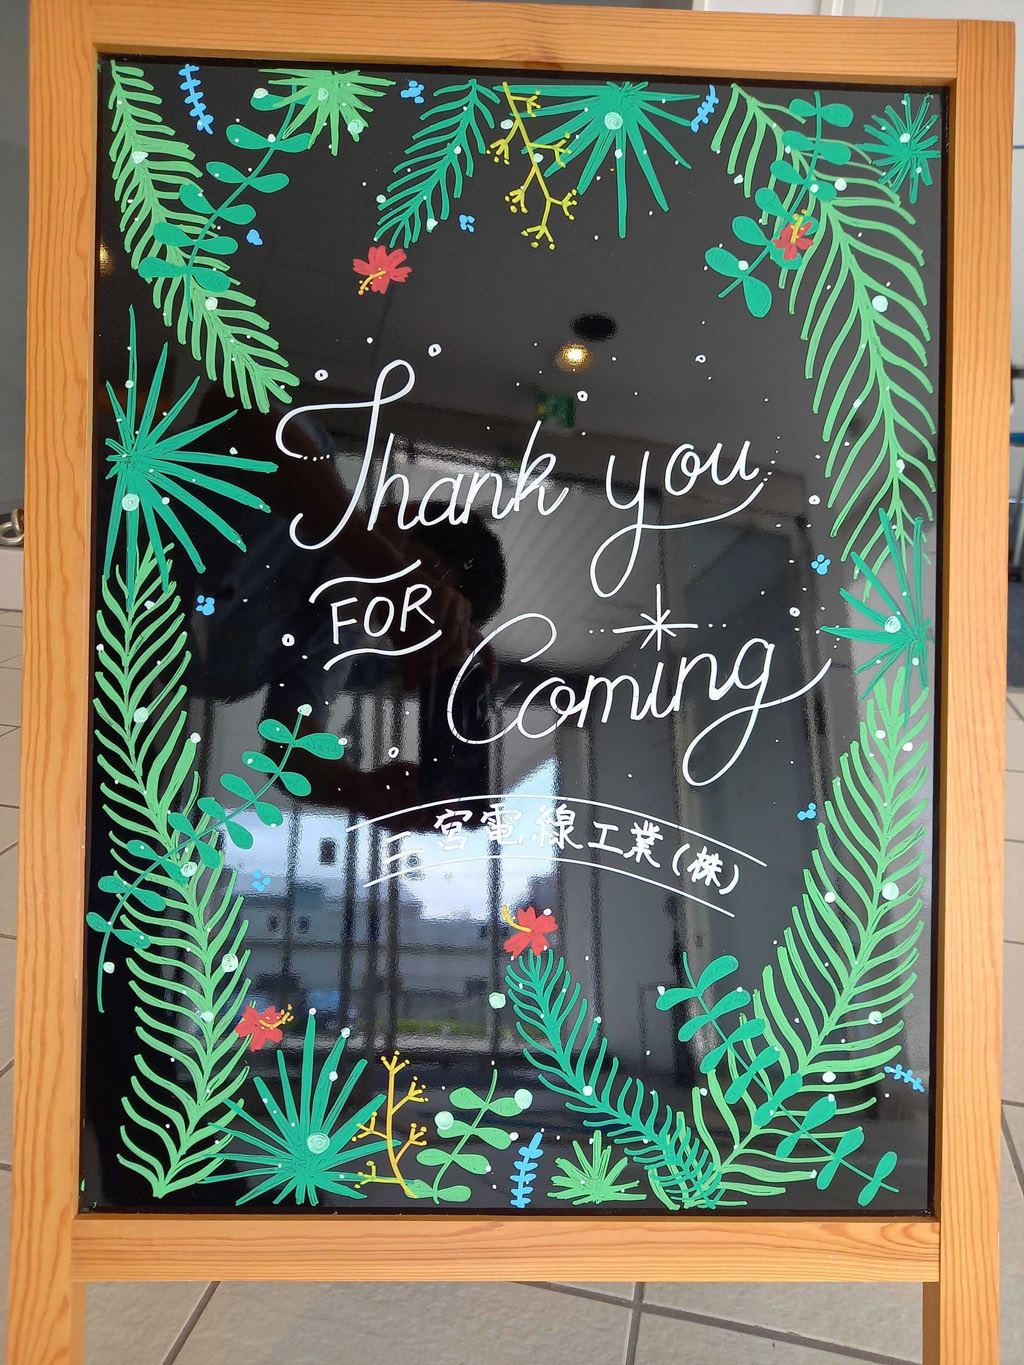 Thank you
FOR
Coming
三宮電線工業(株)